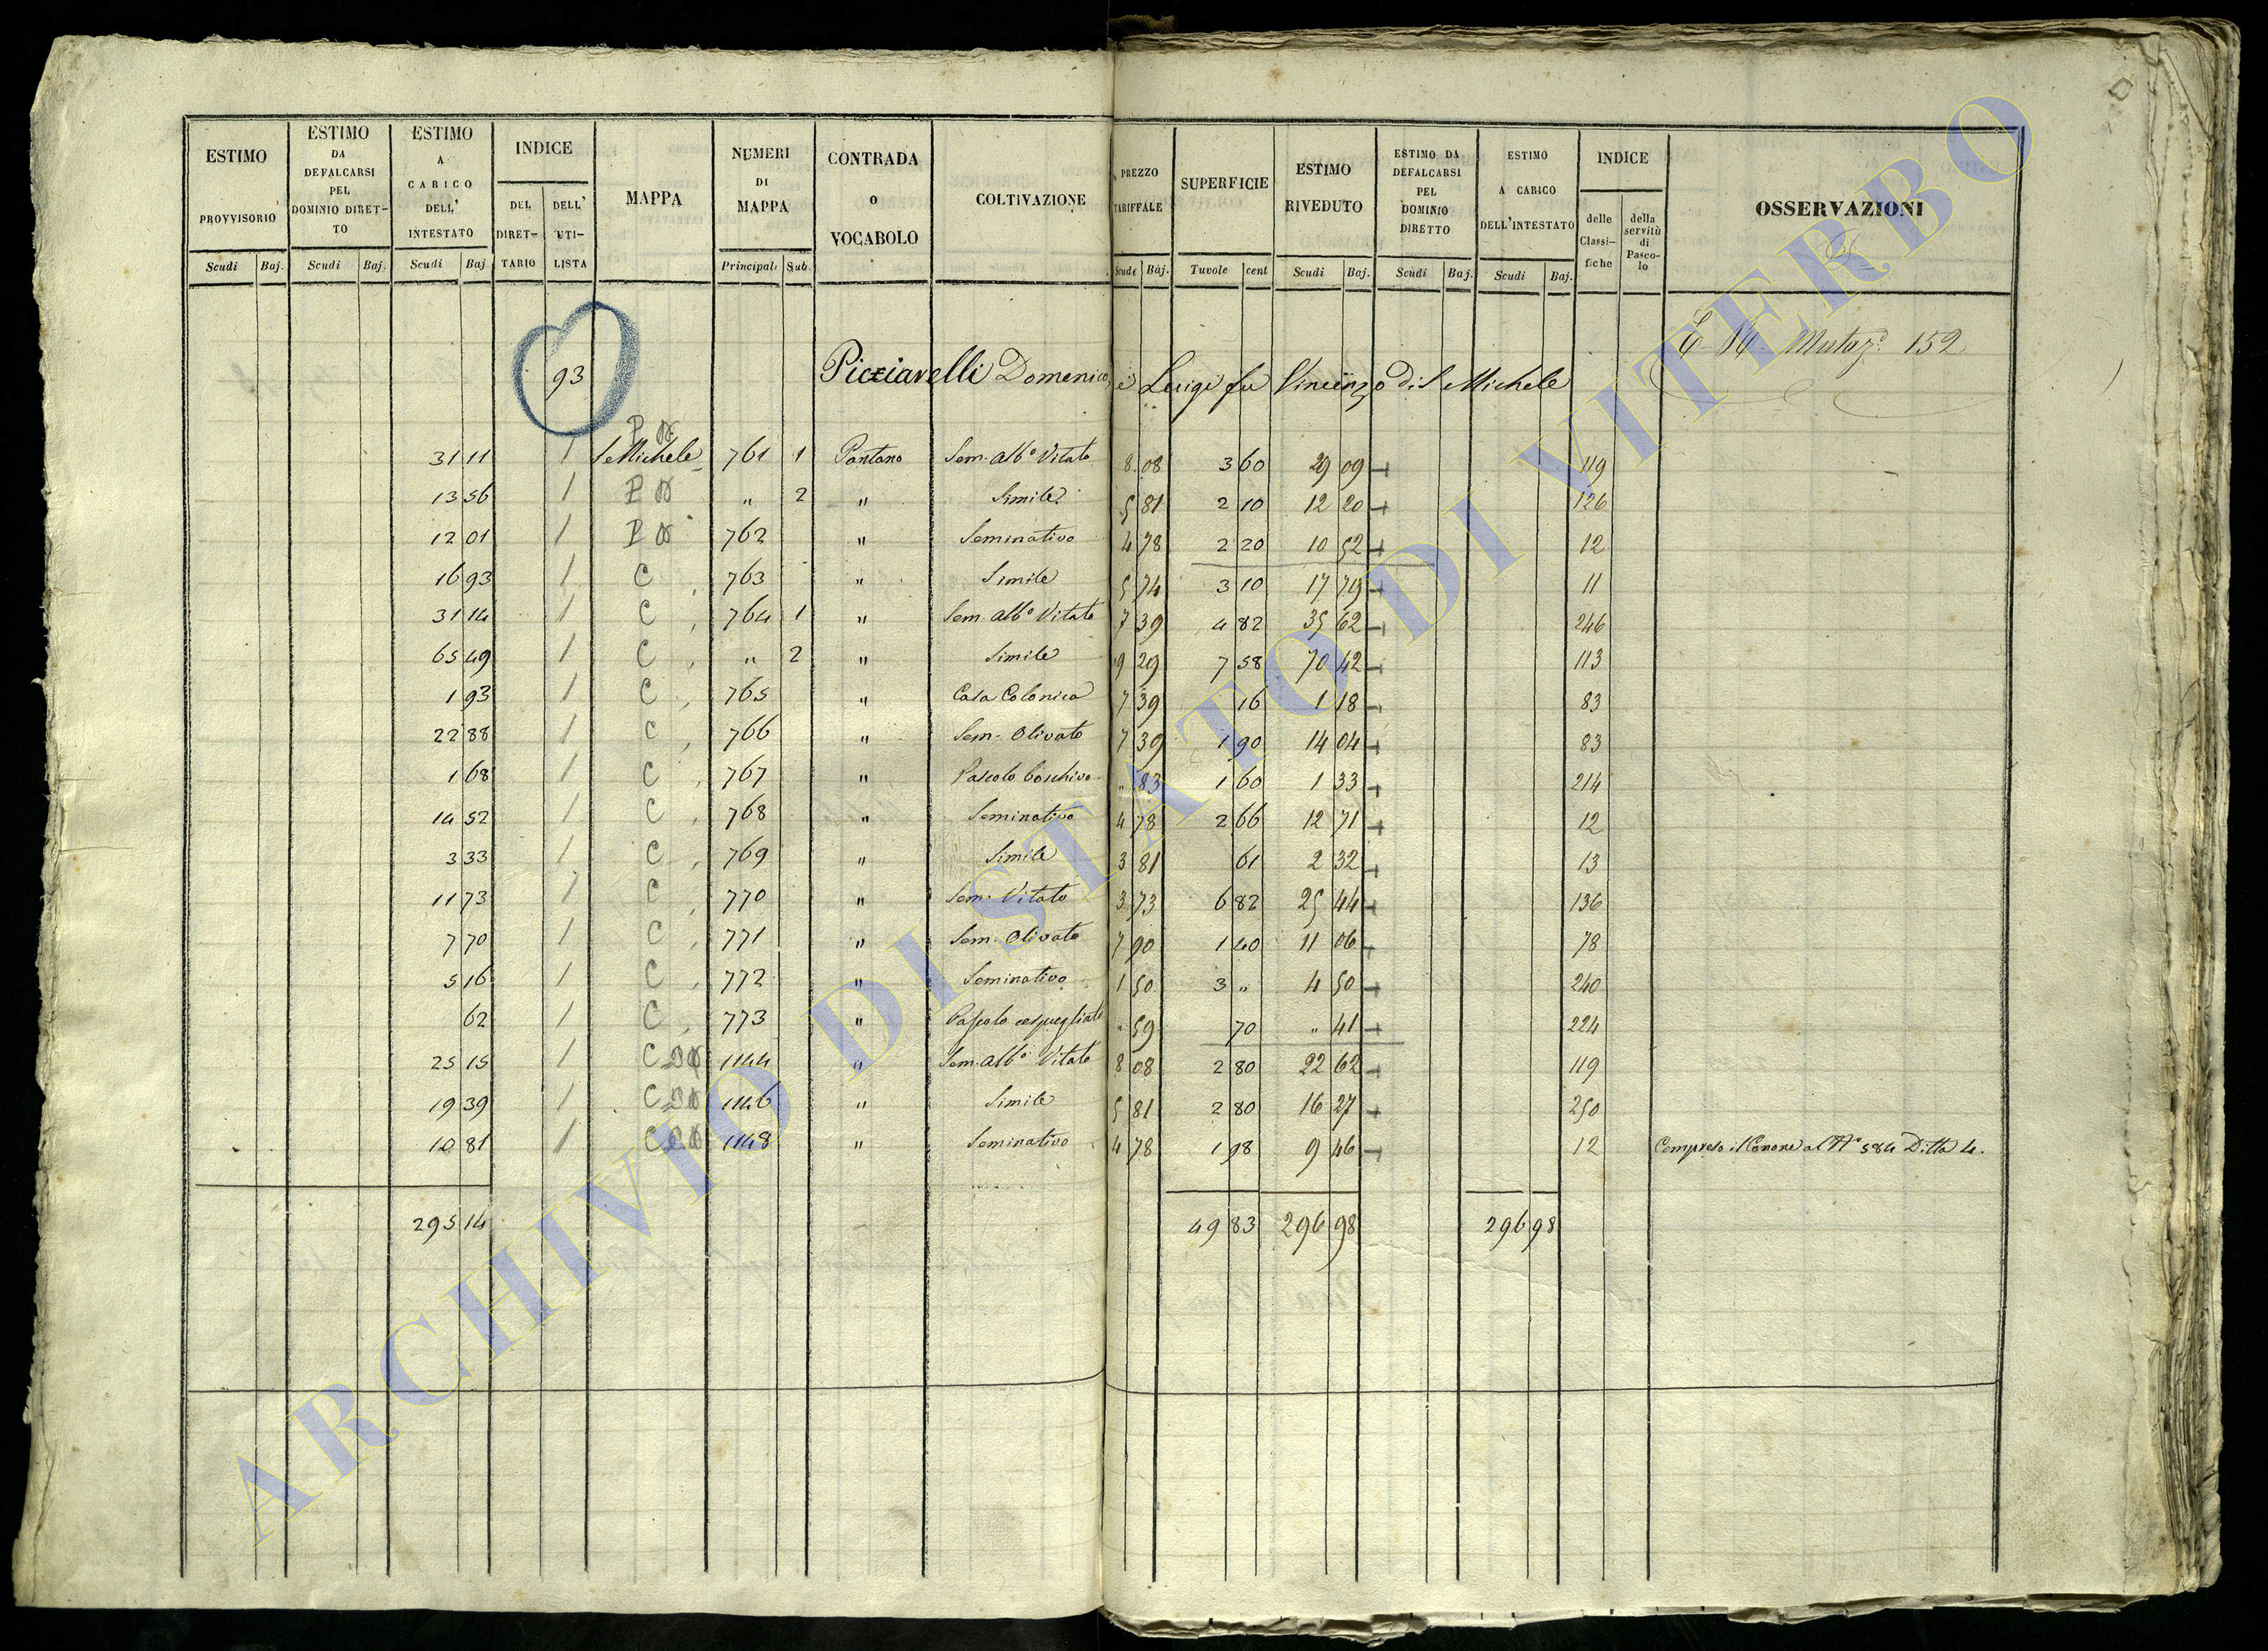 ESTIMO PROVVISORIO Scudi Baj.
ESTIMO DA DEFALCARSI PEL DOMINIO DIRET- TO Scudi Baj.
ESTIMO A CARICO DELL' INTESTATO Scudi Baj
INDICE DEL DIRET- TARIO DELL' UTI- LISTA
MAPPA
NUMERI DI MAPPA Principali Sub.
CONTRADA o VOCABOLO
COLTIVAZIONE
PREZZO TARIFFALE Scudi Baj.
SUPERFICIE Tavole cent
ESTIMO RIVEDUTO Scudi Baj.
ESTIMO DA DEFALCARSI PEL DOMINIO DIRETTO Scudi Baj.
ESTIMO A CARICO DELL'INTESTATO Scudi Baj.
INDICE delle Classi- fiche della servitù di Pasco- lo
OSSERVAZIONI
Mutaz. 152
93 Picciarelli Domenico, e Luigi fu Vincenzo di S Michele
31 11 1 S Michele 761 1 Pantano Sem. alb.o Vitato 8 08 3 60 29 09 119
13 56 1 " 2 " Simile 5 81 2 10 12 20 126
12 01 1 762 " Seminativo 4 78 2 20 10 52 12
16 93 1 C 763 " Simile 5 74 3 10 17 79 11
31 14 1 C 764 1 " Sem. alb.o Vitato 7 39 4 82 35 62 246
65 49 1 C " 2 " Simile 9 29 7 58 70 42 113
1 93 1 C 765 " Casa Colonica 7 39 16 1 18 83
22 88 1 C 766 " Sem. Olivato 7 39 1 90 14 04 83
1 68 1 C 767 " Pascolo boschivo " 83 1 60 1 33 214
14 52 1 C 768 " Seminativo 4 78 2 66 12 71 12
3 33 1 C 769 " Simile 3 81 61 2 32 13
11 73 1 C 770 " Sem. Vitato 3 73 6 82 25 44 136
7 70 1 C 771 " Sem. Olivato 7 90 1 40 11 06 78
5 16 1 C 772 " Seminativo 1 50 3 " 4 50 240
62 1 C 773 " Pascolo cespugliato " 59 70 " 41 224
25 15 1 C 1144 " Sem. alb.o Vitato 8 08 2 80 22 62 119
19 39 1 C 1146 " Simile 5 81 2 80 16 27 250
10 81 1 C 1148 " Seminativo 4 78 1 98 9 46 12 Compreso il Canone al N.o 584 Ditta 4.
295 14 49 83 296 98 296 98
ARCHIVIO DI STATO DI VITERBO